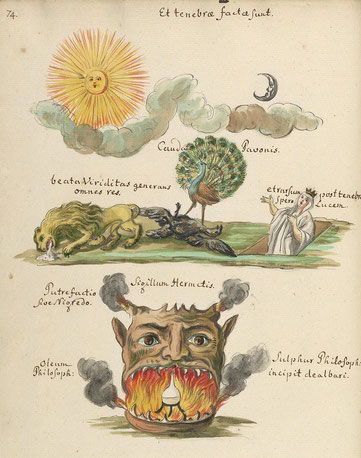 74.
Et tenebræ factæ sunt.
Cauda Pavonis.
beata Viriditas generans
omnes res.
et rursum post tenebras
spero Lucem.
Putrefactio
sive Nigredo.
Sigillum Hermetis.
Oleum
Philosoph:
Sulphur Philosoph:
incipit dealbari.